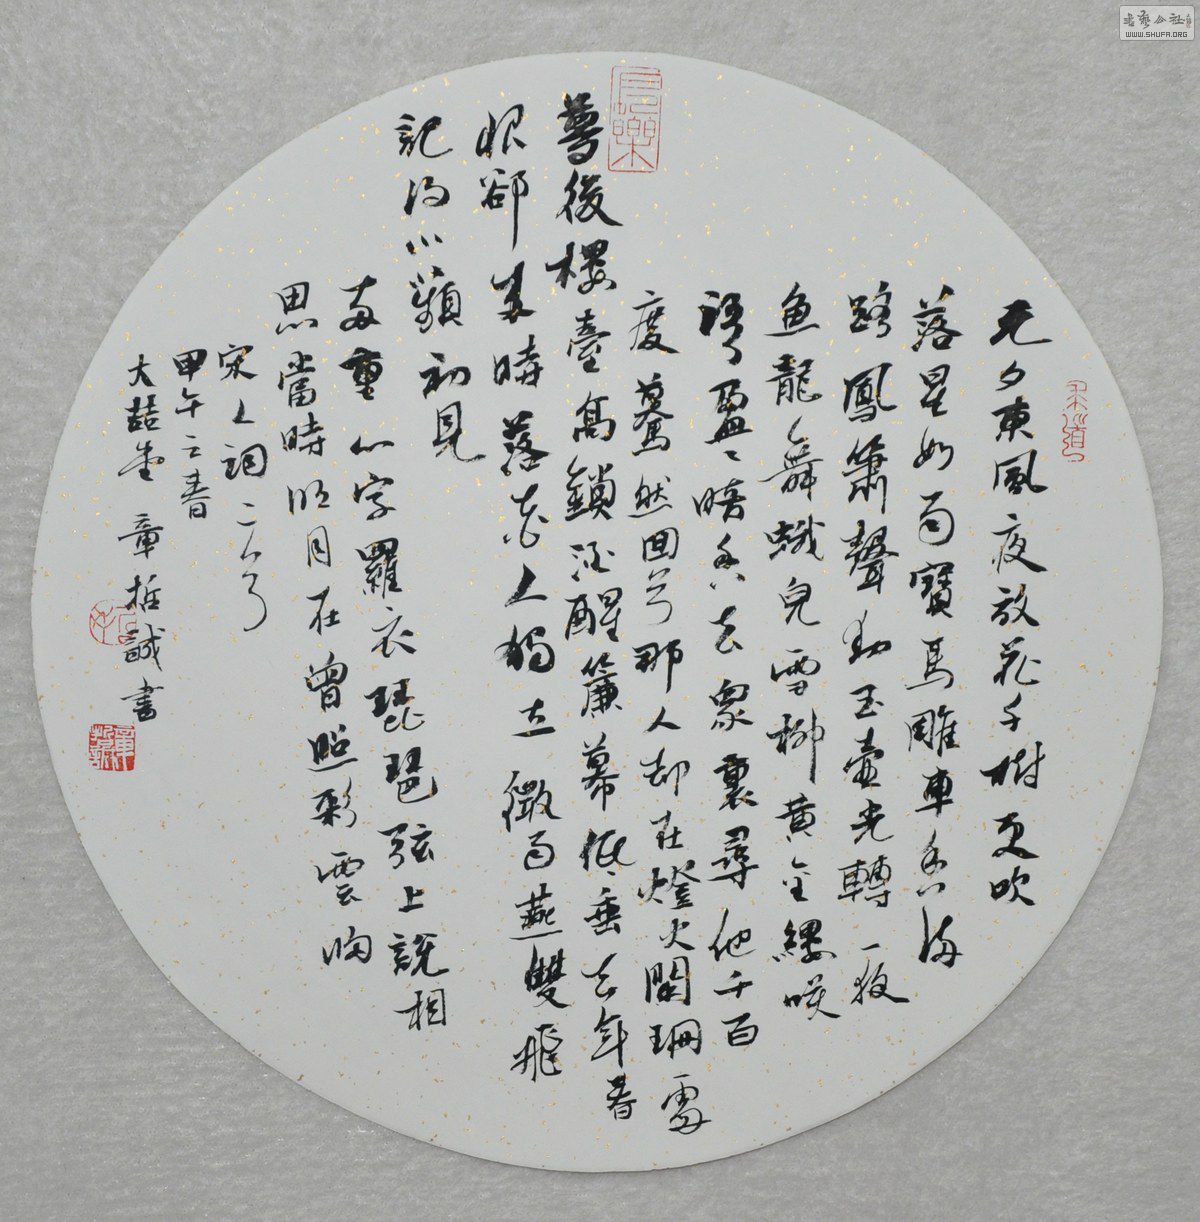 元夕東風夜放花千樹更吹
落星如雨寶馬雕車香滿
路鳳簫聲動玉壺光轉一夜
魚龍舞蛾兒雪柳黃金縷笑
語盈盈暗香去衆裏尋他千百
度驀然回首那人却在燈火闌珊處
夢後樓臺高鎖酒醒簾幕低垂去年春
恨卻來時落花人獨立微雨燕雙飛
記得小蘋初見
兩重心字羅衣琵琶弦上說相
思當時明月在曾照彩雲歸
宋人詞二首
甲午之春
大喆堂 章哲誠書
長樂
書藝公社
WWW.SHUFA.ORG